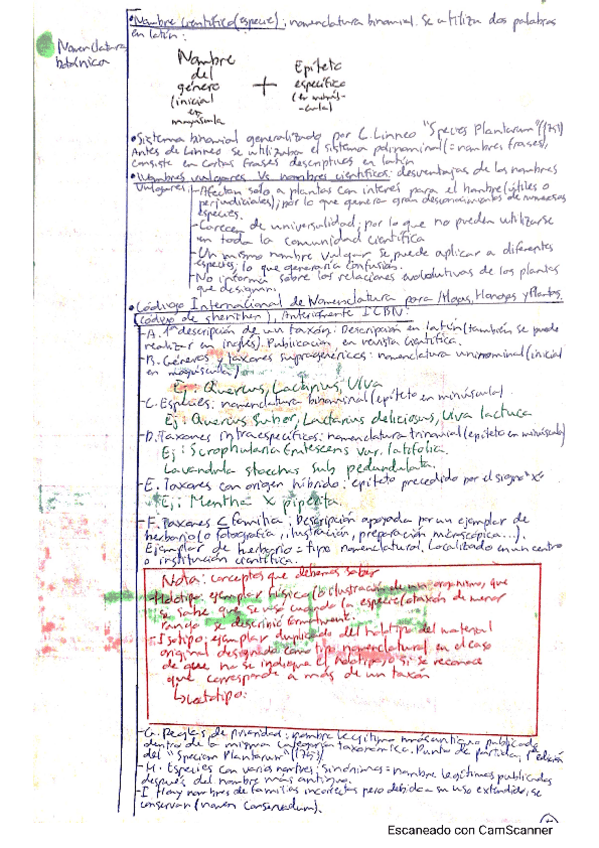 Nomenclatura
botánica
•Nombre científico(especie): nomenclatura binomial. Se utiliza dos palabras
en latín:
Nombre
del
género
(inicial
en
mayúscula
+
Epíteto
específico
(en minús-
-cula)
•Sistema binomial generalizado por C. Linneo "Species Plantarum"
Antes de Linneo se utilizaba el sistema polinominal (=nombres frases),
consiste en cortas frases descriptivas en latín
•Nombres vulgares Vs nombres científicos: desventajas de los nombres
vulgares:
-Afectan solo a plantas con interés para el hombre (útiles o
perjudiciales), por lo que genera gran desconocimiento de numerosas
especies.
-Carecen de universalidad, por lo que no pueden utilizarse
en toda la comunidad científica
-Un mismo nombre vulgar se puede aplicar a diferentes
especies, lo que generaría confusión.
-No informa sobre las relaciones evolutivas de las plantas
que designan.
•Código Internacional de Nomenclatura para Algas, Hongos y Plantas
(código de Shenzhen), Anteriormente ICBN:
-A. 1ª descripción de un taxón: Descripción en latín (también se puede
realizar en inglés). Publicación en revista científica.
-B. Géneros y taxones supragenéricos: nomenclatura uninominal (inicial
en mayúscula)
Ej: Quercus, Lactarius, Ulva
-C. Especies: nomenclatura binominal (epíteto en minúscula)
Ej: Quercus Suber, Lactarius deliciosus, Ulva lactuca
-D. Taxones infraespecíficos: nomenclatura trinomial (epíteto en minúscula)
Ej: Scrophularia frutescens var. latifolia.
Lavandula stoechas sub pedunculata.
-E. Taxones con origen híbrido: epíteto precedido por el signo "x"
Ej: Mentha x piperita.
-F. Taxones ≤ familia: Descripción apoyada por un ejemplar de
herbario (o fotografía, ilustración, preparación microscópica...).
Ejemplar de herbario = tipo nomenclatural. Localizado en un centro
o institución científica.
Nota: conceptos que debemos saber
-Holotipo: ejemplar físico (o ilustración) de un organismo, que
se sabe que se usó cuando la especie (o taxón de menor
rango se describió formalmente.
-Isotipo: ejemplar duplicado del holotipo del material
original designado como tipo nomenclatural en el caso
de que no se indique el holotipo, o si se reconoce
que corresponde a más de un taxón
↳Lectotipo:
-G. Reglas de prioridad: nombre legítimo más antiguo publicado
dentro de la misma categoría taxonómica. Punto de partida, 1ª edición
del "Species Plantarum"
-H. Especies con varios nombres; sinónimos = nombre legítimos publicados
después del nombre más antiguo.
-I Hay nombres de familias incorrectas pero debido a su uso extendido, se
conservan (nomen conservandum).
Escaneado con CamScanner